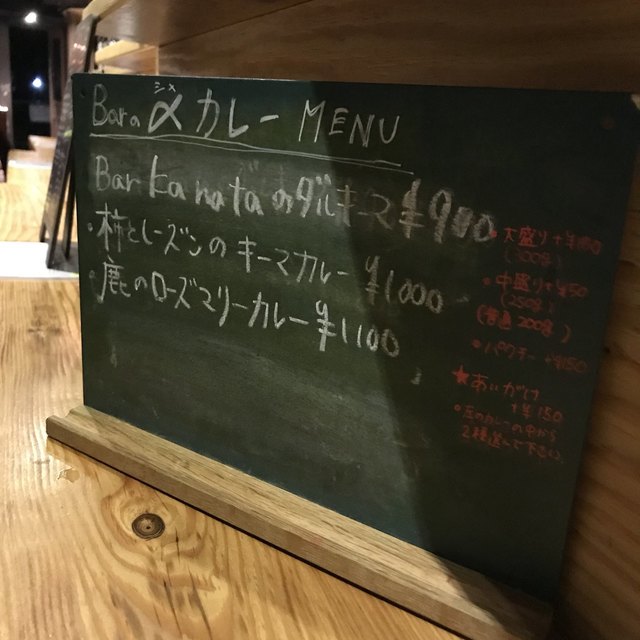 Barの〆カレー MENU
シメ
Bar kanataのダルキーマ ¥900
・柿とレーズンのキーマカレー ¥1000
・鹿のローズマリーカレー ¥1100
・大盛り
・中盛り
(普通200g)
・パクチー
★あいがけ
・左のカレーの中から
2種選んで下さい